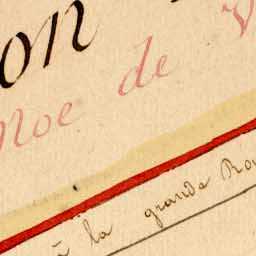 on
Noe de V
à la grande Ro